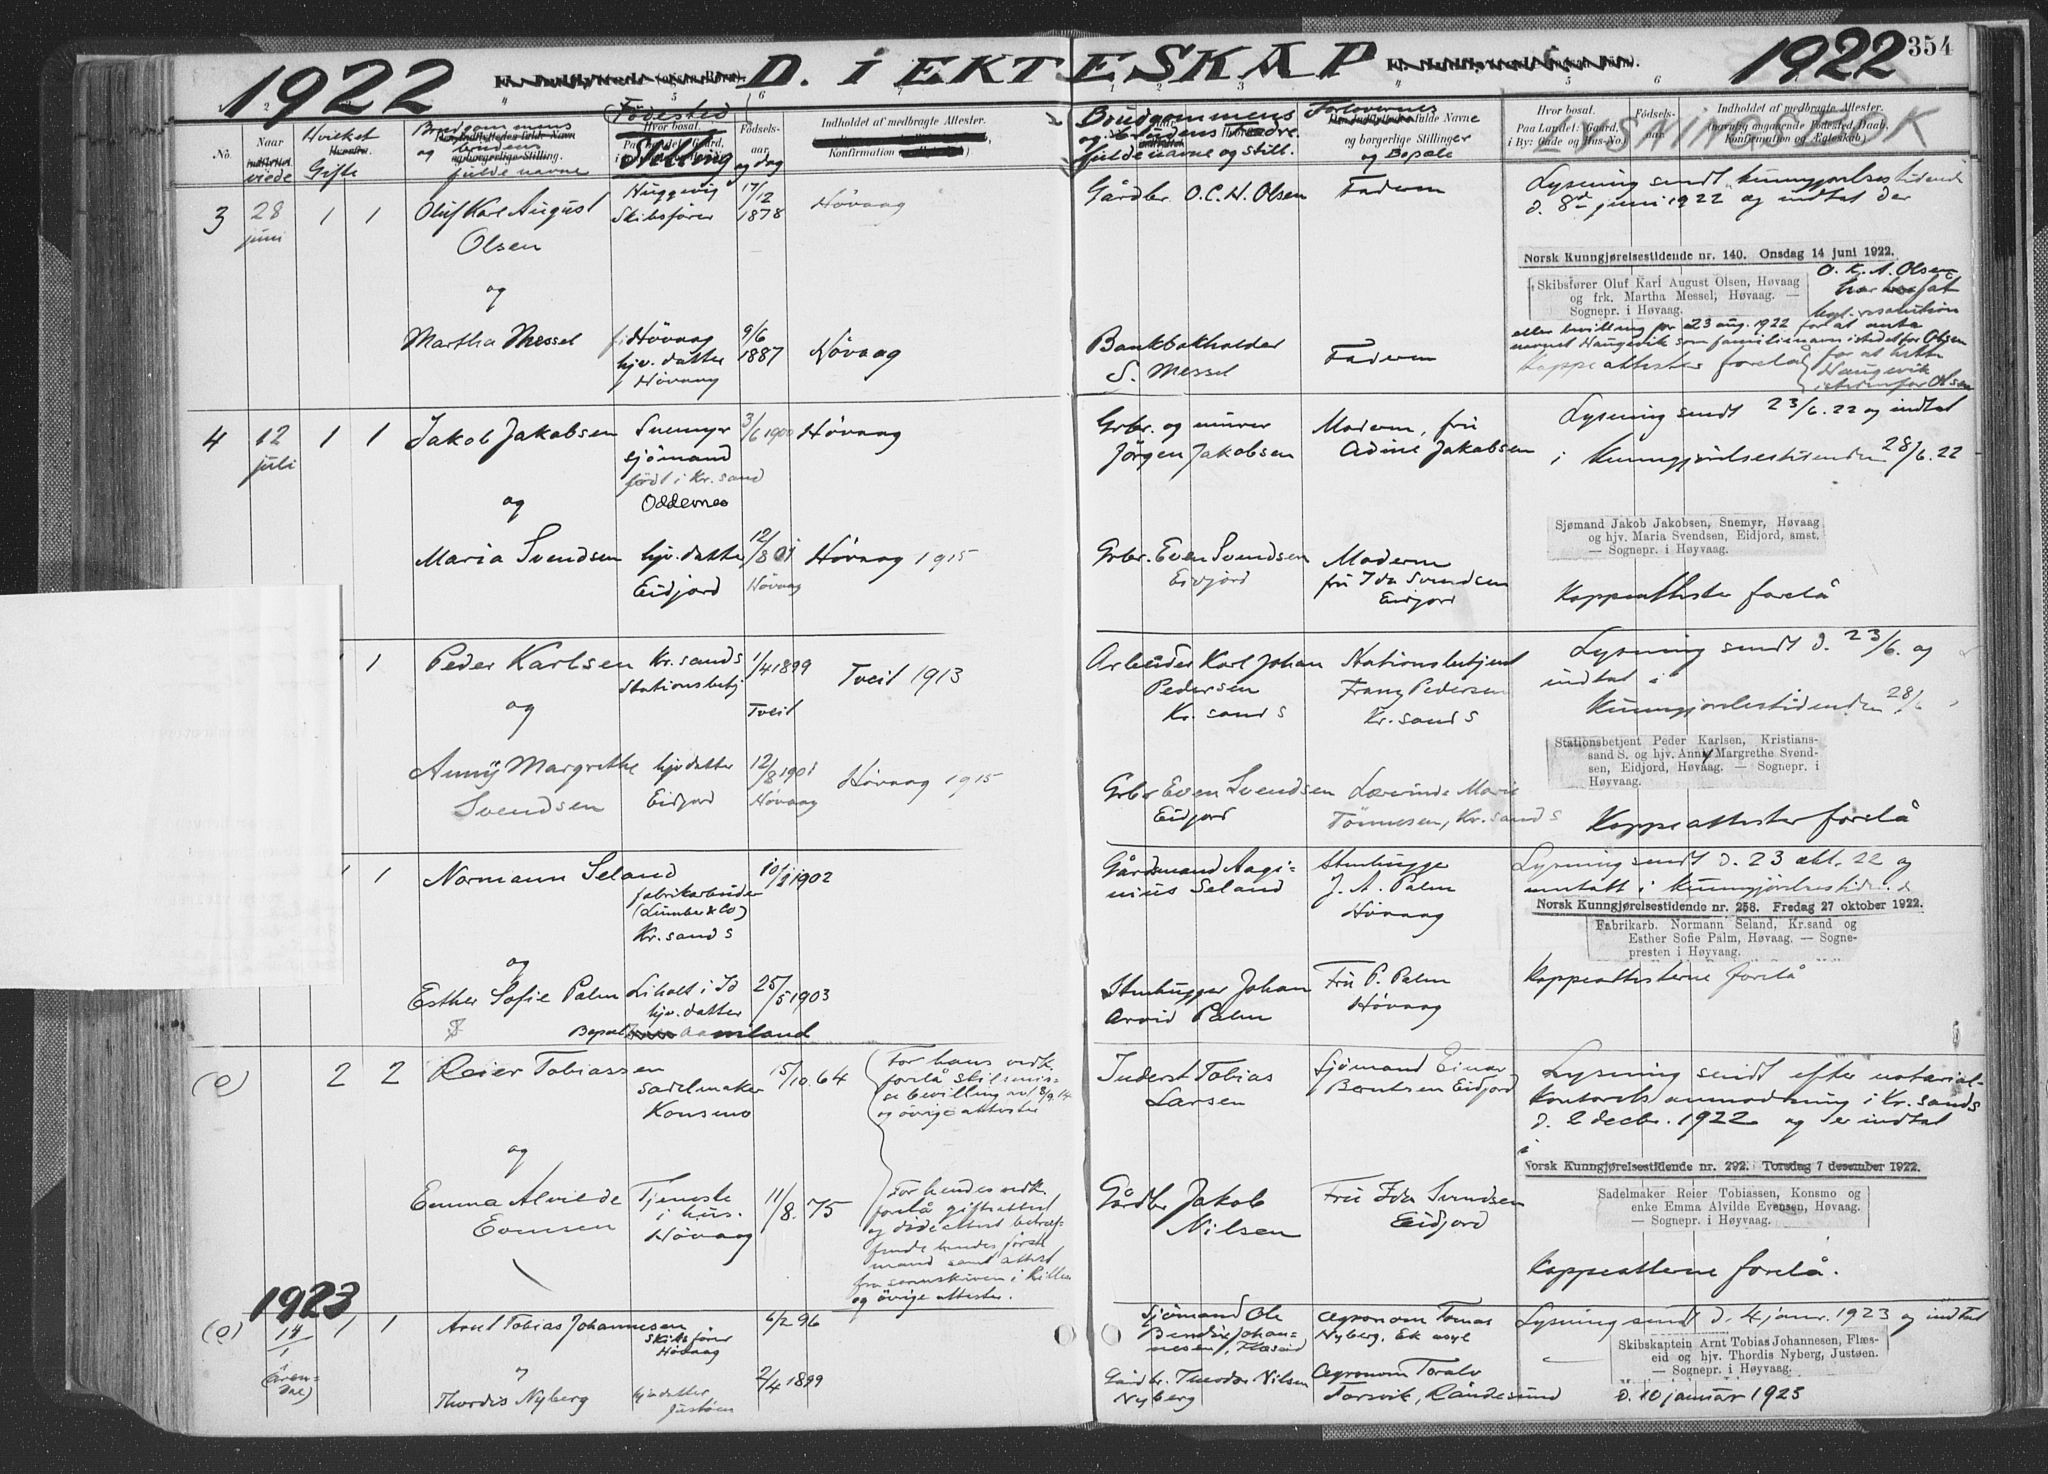 1922 D. i EKTESKAP 1922 354
LYSNINGSBOK
No.
Naar
viede
Hvilket
Gifte
Brudgommens
og brudens
fulde navne
Fødested
Stilling
Fødsels-
aar
og dag
Indholdet af medbragte Attester.
Konfirmation
Brudgommens
og brudens fædre.
fulde navne og still.
Forlovernes
fulde Navne
og borgerlige Stillinger
og Bopæle
Hvor bosat.
Paa Landet: Gaard,
i By: Gade og Hus-No.
Fødsels-
aar
Indholdet af medbragte Attester.
(navnlig angaaende Fødested, Daab,
Konfirmation og Ægteskab)
3 28 juni 1 1
Oluf Karl August
Olsen
Skibsfører
17/12
1878
Høvaag
Gårdbr. O. C. H. Olsen
Faderen
Lysning sendt kunngjørelsestidende
d. 8de juni 1922 og indtat der
Norsk Kunngjørelsestidende nr. 140. Onsdag 14 juni 1922.
Skibsfører Oluf Karl August Olsen, Høvaag
og frk. Martha Messel, Høvaag. —
Sognepr. i Høvaag.
O. K. A. Olsen
har fåt
kgl. resolution
eller bevilling for 23 aug. 1922 for at anta
navnet Haugevik som familienavn istedetfor Olsen
og
Martha Messel
Høvaag
hjv. datter
Høvaag
9/6
1887
Høvaag
Bankbokholder
S. Messel
Faderen
Koppeattester forelå
for at hete
Haugevik
istedenfor Olsen
4 12 juli 1 1
Jakob Jakobsen
Snemyr
sjømand
født i Kr. sand
Oddernes
3/6 1900
Høvaag
Grbr. og murer
Jörgen Jakobsen
Moderen, fru
Adine Jakobsen
Lysning sendt 23/6. 22 og indtat
i Kunngjørelsestidenden 28/6. 22
og
Sjømand Jakob Jakobsen, Snemyr, Høvaag
og hjv. Maria Svendsen, Eidjord, smst.
— Sognepr. i Høyvaag.
Maria Svendsen
hjv. datter
Eidjord
12/8 01
Høvaag
Høvaag 1915
Grbr. Even Svendsen
Eidjord
Moderen
fru Ida Svendsen
Eidjord
Koppeattester forelå
1
Peder Karlsen
Kr. sand S
Stationsbetj
1/4 1899
Tveit
Tveit 1913
Arbeider Karl Johan
Pedersen
Kr. sand S
Stationsbetjent
Franz Pedersen
Kr. sand S
Lysning sendt d. 23/6. og
indtat i
Kunngjørelsestidenden 28/6
og
Stationsbetjent Peder Karlsen, Kristians-
sand S. og hjv. Anny Margrethe Svend-
sen, Eidjord, Høvaag. — Sognepr. i
Høyvaag.
Anny Margrethe
Svendsen
hjv datter
Eidjord
12/8 1901
Høvaag
Høvaag 1915
Grbr Even Svendsen
Eidjord
Lærerinde Marie
Tönnesen, Kr. sand S
Koppeattester forelå
1 1
Normann Seland
fabrikarbeider
(Lumber & Co)
Kr. sand S
1902
Gårdmand Aagi-
nius Seland
Stenhugger
J. A. Palm
Høvaag
Lysning sendt d. 23 okt. 22 og
inntatt i Kunngjørelsestid.
Norsk Kunngjørelsestidende nr. 258. Fredag 27 oktober 1922.
Fabrikarb. Normann Seland, Kr.sand og
Esther Sofie Palm, Høvaag. — Sogne-
presten i Høyvaag.
og
Esther Sofie Palm
Liholt i Id
hjv. datter
Bopæl
25/5 1903
Stenhugger Johan
Arvid Palm
Fru P. Palm
Høvaag
Koppeattesterne forelå
(0) 2 2
Reier Tobiassen
sadelmaker
Konsmo
15/10. 64
For hans vedk.
forelå skilsmis-
se bevilling av
og övrige attester
Inderst Tobias
Larsen
Sjömand Einar
Berntsen Eidjord
Lysning sendt efter notarial-
kontorets anmodning i Kr. sand S
d. 2 decbr. 1922 og er indtat
i
og
Norsk Kunngjørelsestidende nr. 292. Torsdag 7 desember 1922.
Sadelmaker Reier Tobiassen, Konsmo og
enke Emma Alvilde Evensen, Høvaag.
— Sognepr. i Høyvaag.
Emma Alvilde
Evensen
Tjeneste
i hus.
Høvaag
11/8. 75
For hendes vedk.
forelå giftsattest
og dødsattest betræf-
fende hendes første
mand samt attest
fra sorenskriven i Lille
og övrige attester.
Gårdbr Jakob
Nilsen
Fru Ida Svendsen
Eidjord
Koppeatterne forelå.
1923
(0) 14/1
(Aren-
dal)
1 1
Arnt Tobias Johannesen
Skibsfører
Høvaag
6/2 96
Sjömand Ole
Bendix Johan-
nesen, Flæseid
Agronom Tomas
Nyberg, Ek asyl
Lysning sendt d. 4 janr. 1923 og indtat
Skibskaptein Arnt Tobias Johannesen, Flæs-
eid og hjv. Thordis Nyberg, Justøen.
— Sognepr. i Høyvaag.
Thordis Nyberg
hjv datter,
Justøen
2/4 1899
Gårdbr. Theodor Nilsen
Nyberg
Agronom Toralv
Torsvik, Randesund
d. 10 januar 1923